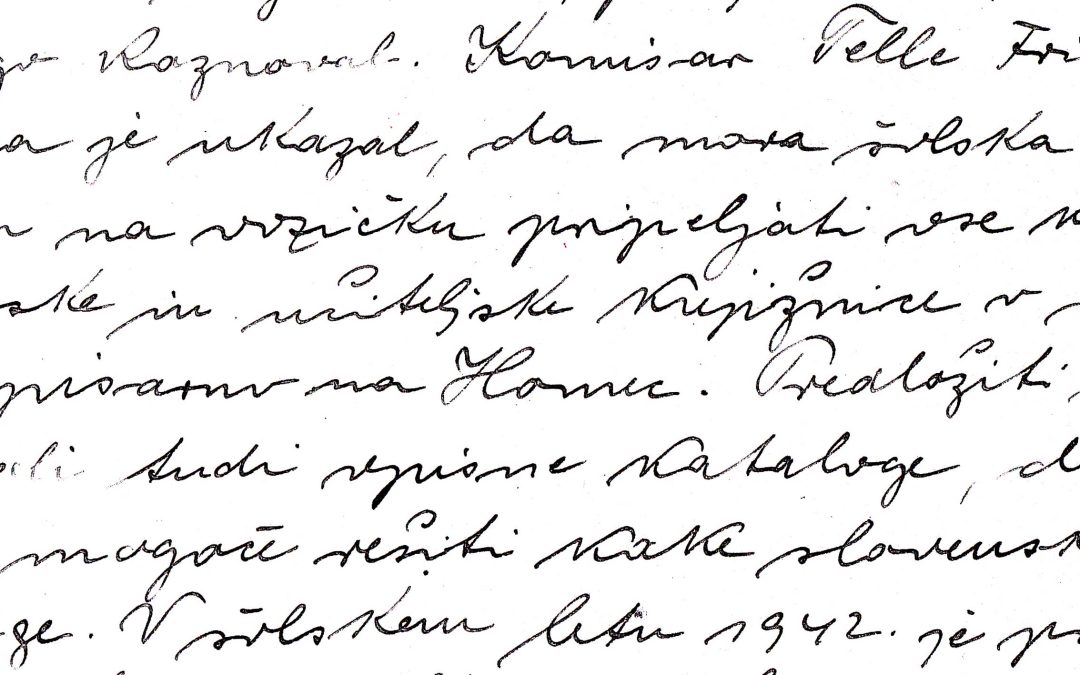 kaznoval. Komisar Telle Fri
a je ukazal, da mora šolska
na vozičku pripeljati vse
ske in učiteljske knjižnice v
pisarno na Homec. Predložiti
ali tudi vpisne kataloge, d
mogoče rešiti kake slovensk
ge. V šolskem letu 1942. je